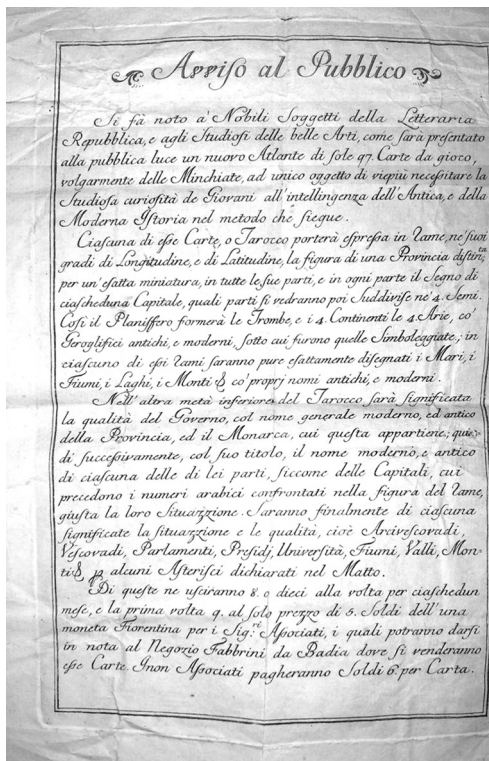 Avviso al Pubblico
Si fà noto a' Nobili Soggetti della Letteraria
Repubblica, e agli Studiosi delle belle Arti, come sarà presentato
alla pubblica luce un nuovo Atlante di sole 97. Carte da gioco,
volgarmente delle Minchiate, ad unico oggetto di viepiù necessitare la
Studiosa curiosità de Giovani all'intellingenza dell'Antica, e della
Moderna Istoria nel metodo che siegue.
Ciascuna di esse Carte, o Tarocco porterà espressa in Rame, ne' suoi
gradi di Longitudine, e di Latitudine, la figura di una Provincia distinta
per un'esatta miniatura, in tutte le sue parti, e in ogni parte il Segno di
ciascheduna Capitale, quali parti si vedranno poi Suddivise ne' 4. Semi.
Così il Planisfero formerà le Trombe, e i 4. Continenti le 4. Arie, co'
Geroglifici antichi, e moderni, sotto cui furono quelle Simboleggiate; in
ciascuno di essi Rami saranno pure esattamente disegnati i Mari, i
Fiumi, i Laghi, i Monti & co' proprj nomi antichi, e moderni.
Nell'altra metà inferiore del Tarocco sarà significata
la qualità del Governo, col nome generale moderno, ed antico
della Provincia, ed il Monarca, cui questa appartiene; quin-
di successivamente, col suo titolo, il nome moderno, e antico
di ciascuna delle di lei parti, siccome delle Capitali, cui
precedono i numeri arabici confrontati nella figura del Rame,
giusta la loro Situazzione. Saranno finalmente di ciascuna
significate la situazzione e le qualità, cioè Arcivescovadi,
Vescovadi, Parlamenti, Presidj, Università, Fiumi, Valli, Mon-
ti &, alcuni Asterisci dichiarati nel Matto.
Di queste ne usciranno 8. o dieci alla volta per ciaschedun
mese, e la prima volta 9. al solo prezzo di 5. Soldi dell'una
moneta Fiorentina per i Sig.ri Associati, i quali potranno darsi
in nota al Negozio Fabbrini da Badia dove si venderanno
esse Carte. I non Associati pagheranno Soldi 6. per Carta.